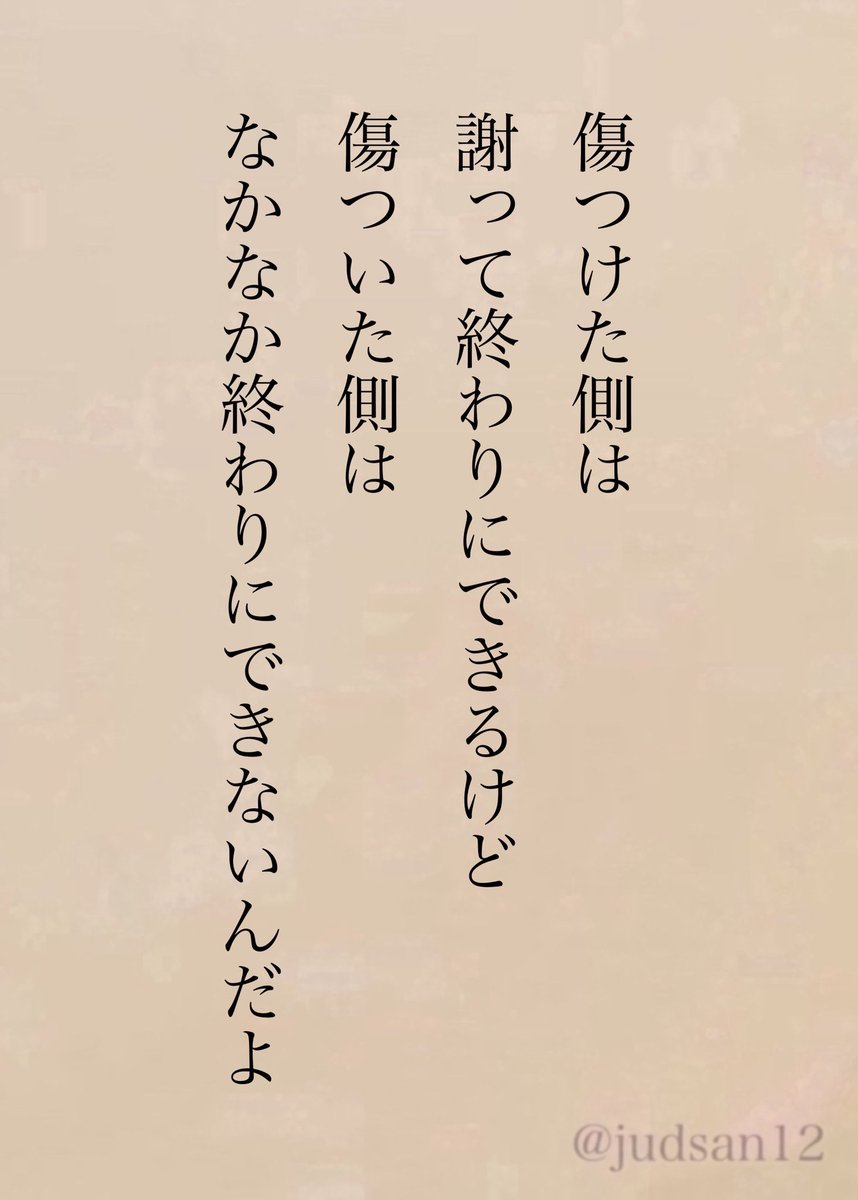 傷つけた側は
謝って終わりにできるけど
傷ついた側は
なかなか終わりにできないんだよ
@judsan12